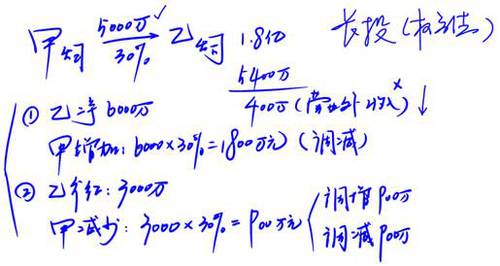 甲公司 5000万✓ 30% 乙公司 1.8亿 长投(权益法)
5400万
400万(营业外收入×)↓
① 乙净6000万
甲增加:6000×30%=1800万元(调减)
② 乙分红:3000万
甲减少:3000×30%=900万元
调增900万
调减900万